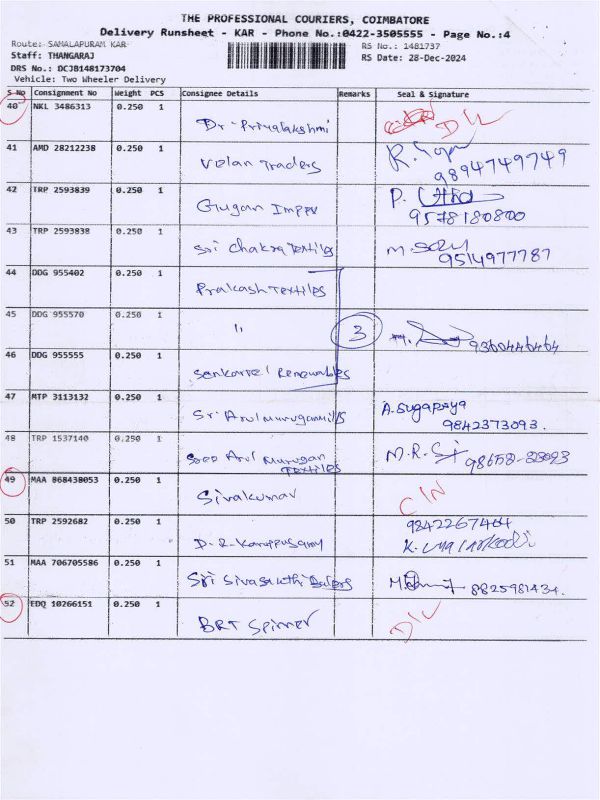 THE PROFESSIONAL COURIERS, COIMBATORE
Delivery Runsheet - KAR - Phone No.:0422-3505555 - Page No.:4
Route: SAMALAPURAM KAR RS No.: 1481737
Staff: THANGARAJ RS Date: 28-Dec-2024
DRS No.: DCJB148173704
Vehicle: Two Wheeler Delivery
S No Consignment No Weight PCS Consignee Details Remarks Seal & Signature
40 NKL 3486313 0.250 1
Dr. Priyalakshmi DIL
41 AMD 28212238 0.250 1
Velan Traders 9894749749
42 TRP 2593839 0.250 1
Gugan Impex P.
9578180800
43 TRP 2593838 0.250 1
Sri Chakra Textiles M. 9514977787
44 DDG 955402 0.250 1
Prakash Textiles
45 DDG 955570 0.250 1
" 3 9360446464
46 DDG 955555 0.250 1
Sankarvel Renewables
47 MTP 3113132 0.250 1
Sri Arulmurugan Mills A. Sugapriya
9842373093.
48 TRP 1537140 0.250 1
Sree Arul Murugan M.R.S
Textiles
49 MAA 868438053 0.250 1
Sivakumar CIN
50 TRP 2592682 0.250 1 9842267464
D.R. Karuppusamy
51 MAA 706705586 0.250 1
Sri Sivasakthi Balers 8825981434.
52 EDQ 10266151 0.250 1
BRT Spinner DIL